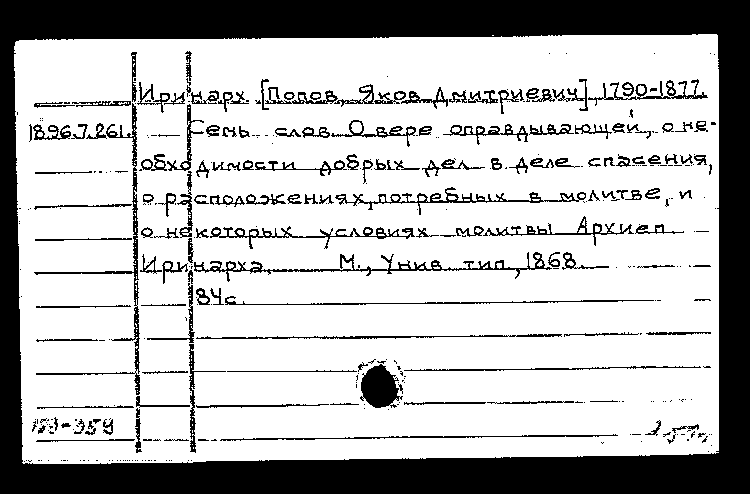 Иринарх [Попов, Яков Дмитриевич], 1790-1877.
1896.7.261. — Семь слов. О вере оправдывающей, о не-
обходимости добрых дел в деле спасения,
о расположениях, потребных в молитве, и
о некоторых условиях молитвы Архиеп.
Иринарха. М., Унив. тип., 1868.
84с.
159-359